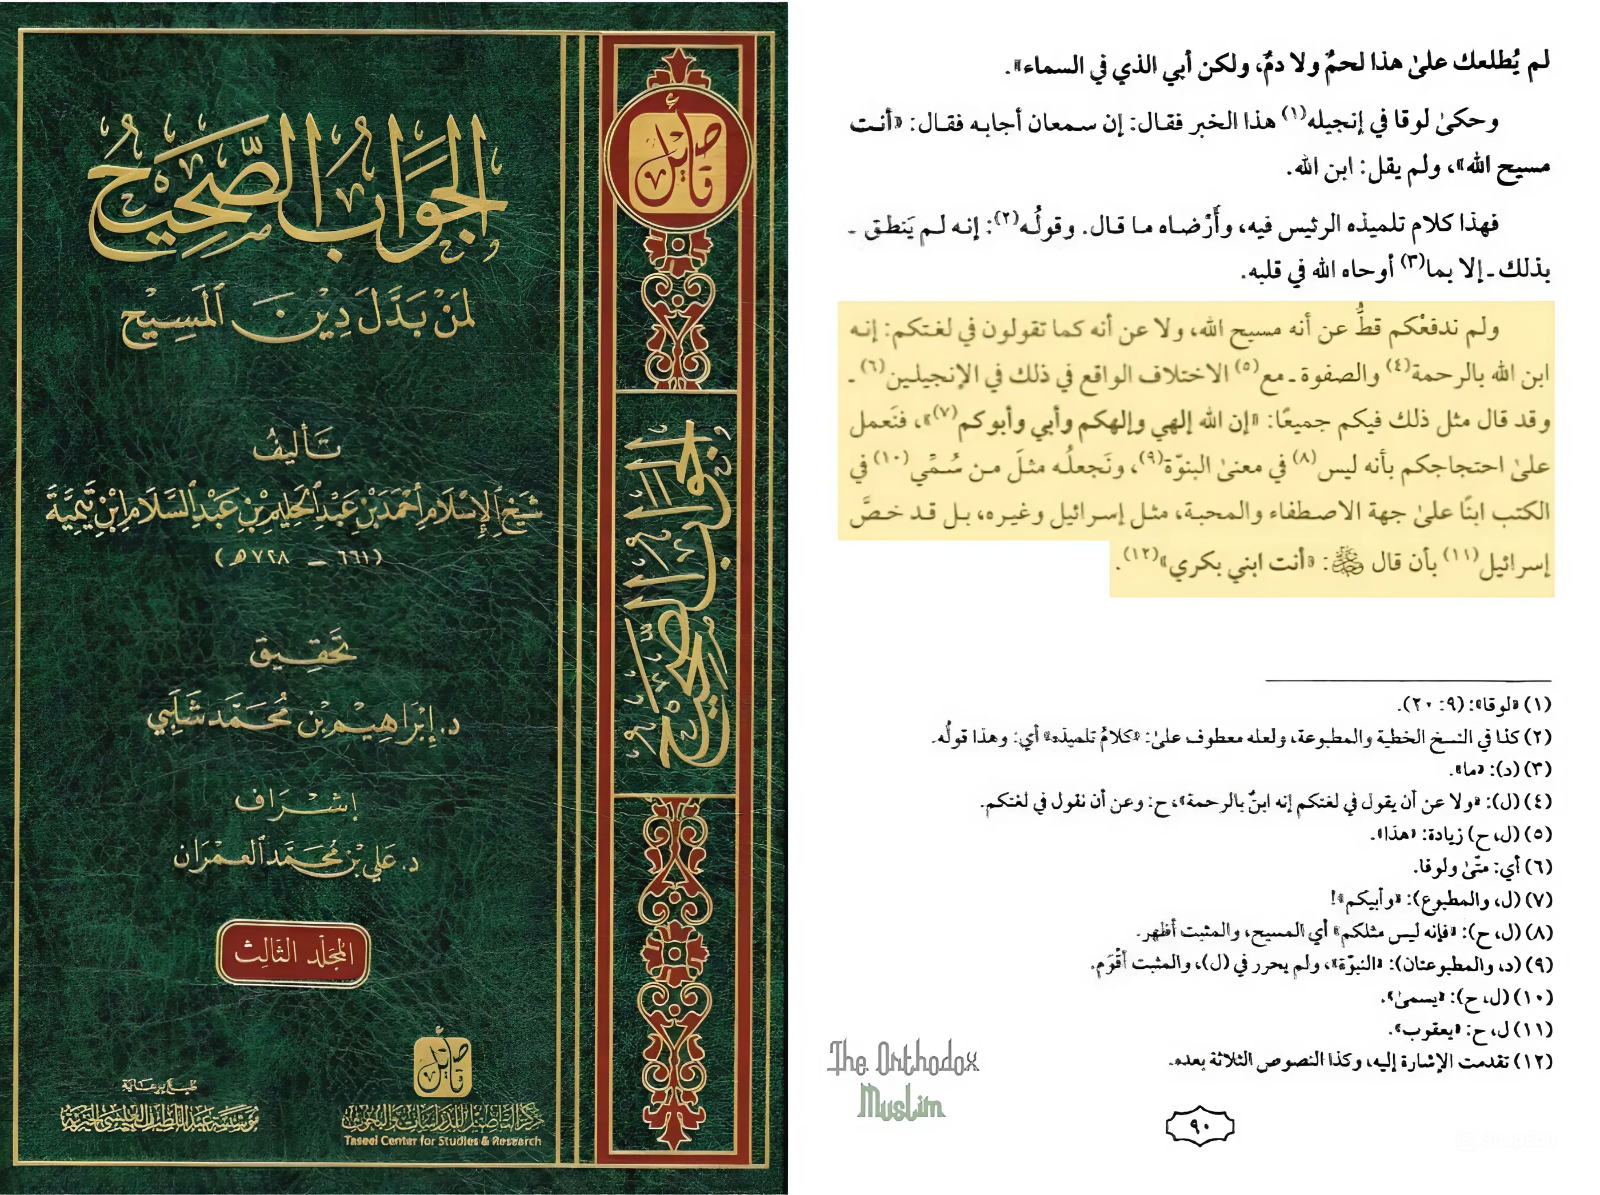 الجَوَابُ الصَّحِيحُ
لِمَنْ بَدَّلَ دِينَ المَسِيحِ
تَأليفُ
شَيْخِ الإِسْلَامِ أَحْمَدَ بْنِ عَبْدِ الحَلِيمِ بْنِ عَبْدِ السَّلَامِ ابْنِ تَيْمِيَّةَ
(٦٦١ – ٧٢٨ هـ)
تَحْقِيق
د. إِبْرَاهِيم بن مُحَمَّد شَلَبِي
إشْرَاف
د. عَلي بْن مُحَمَّد العِمْرَان
المُجَلّد الثّالِث
طبع برعاية
مؤسسة عبد اللطيف العيسى الخيرية
تأصيل
مركز التأصيل للدراسات والبحوث
Taseel Center for Studies & Research
تأصيل
الجَوَابُ الصَّحِيحُ
لم يُطلعك علىٰ هذا لحمٌ ولا دمٌ، ولكن أبي الذي في السماء».
وحكىٰ لوقا في إنجيله(١) هذا الخبر فقال: إن سمعان أجابه فقال: «أنت
مسيح الله»، ولم يقل: ابن الله.
فهذا كلام تلميذه الرئيس فيه، وأَرْضاه ما قال. وقولُه(٢): إنه لم يَنطق -
بذلك - إلا بما(٣) أوحاه الله في قلبه.
ولم ندفعْكم قطُّ عن أنه مسيح الله، ولا عن أنه كما تقولون في لغتكم: إنه
ابن الله بالرحمة(٤) والصفوة - مع(٥) الاختلاف الواقع في ذلك في الإنجيلين(٦) -
وقد قال مثل ذلك فيكم جميعًا: «إن الله إلهي وإلهكم وأبي وأبوكم(٧)»، فنَعمل
علىٰ احتجاجكم بأنه ليس(٨) في معنىٰ البنوّة(٩)، ونَجعلُه مثلَ من سُمّي(١٠) في
الكتب ابنًا علىٰ جهة الاصطفاء والمحبة، مثل إسرائيل وغيره، بل قد خصَّ
إسرائيل(١١) بأن قال ﷻ: «أنت ابني بكري»(١٢).
(١) «لوقا»: (٩: ٢٠).
(٢) كذا في النسخ الخطية والمطبوعة، ولعله معطوف علىٰ: «كلامُ تلميذه» أي: وهذا قولُه.
(٣) (د): «ما».
(٤) (ل): «ولا عن أن يقول في لغتكم إنه ابنٌ بالرحمة»، ح: وعن أن نقول في لغتكم.
(٥) (ل، ح) زيادة: «هذا».
(٦) أي: متّىٰ ولوقا.
(٧) (ل، والمطبوع): «وأبيكم»!
(٨) (ل، ح): «فإنه ليس مثلكم» أي المسيح، والمثبت أظهر.
(٩) (د، والمطبوعتان): «النبوّة»، ولم يحرر في (ل)، والمثبت أقْوَم.
(١٠) (ل، ح): «يسمىٰ».
(١١) ل، ح: «يعقوب».
(١٢) تقدمت الإشارة إليه، وكذا النصوص الثلاثة بعده.
The Orthodox
Muslim
٩٠